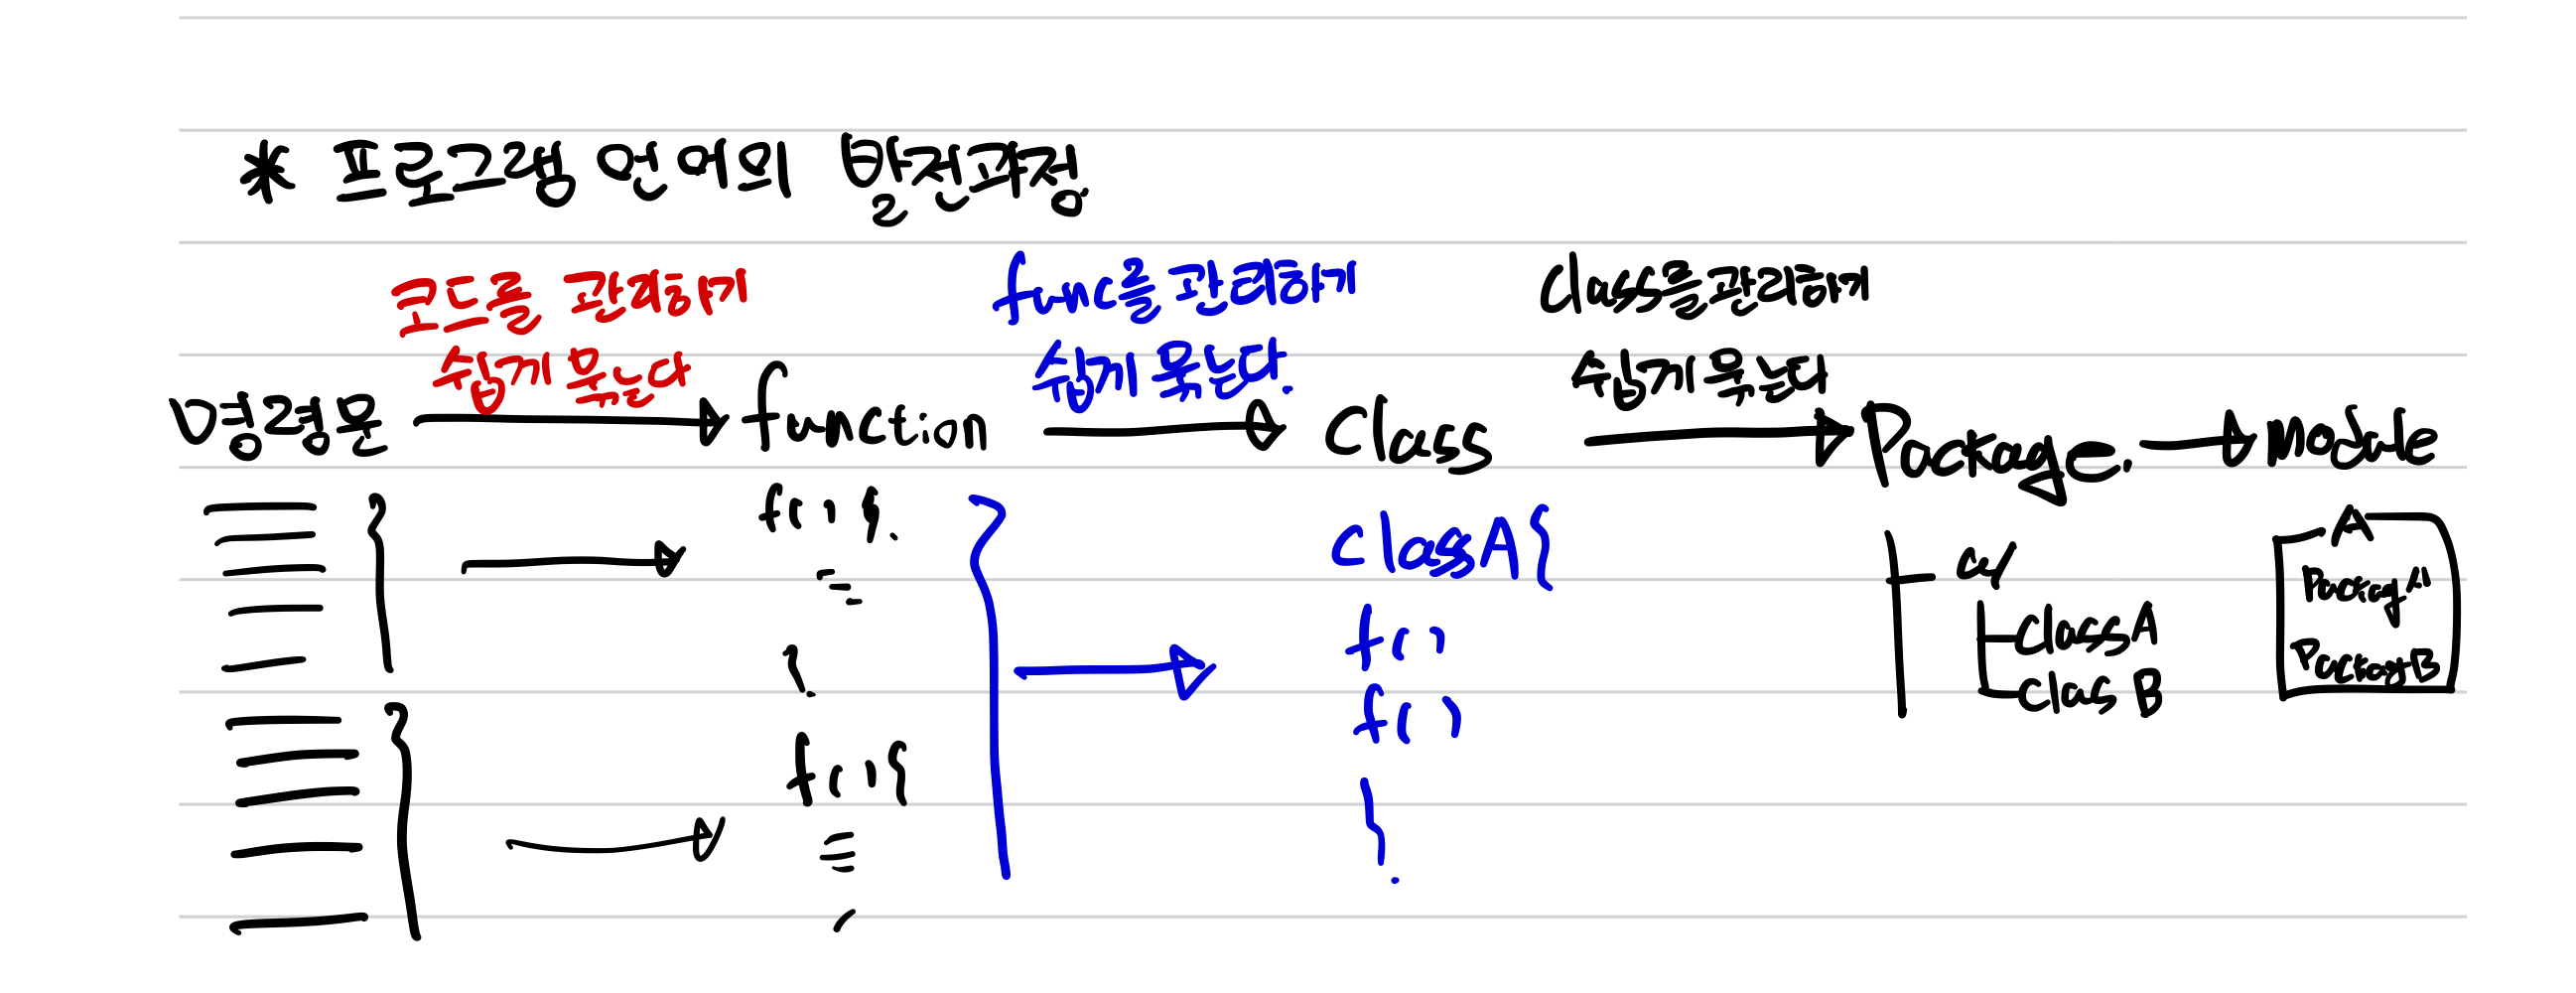 * 프로그램 언어의 발전과정
코드를 관리하기
쉽게 묶는다
func를 관리하기
쉽게 묶는다.
Class를 관리하기
쉽게 묶는다
명령문 function Class Package. Module
f( ) {
f( ) {
class A {
f( )
f( )
}
a/
class A
clas B
A
Packag A
Packag B